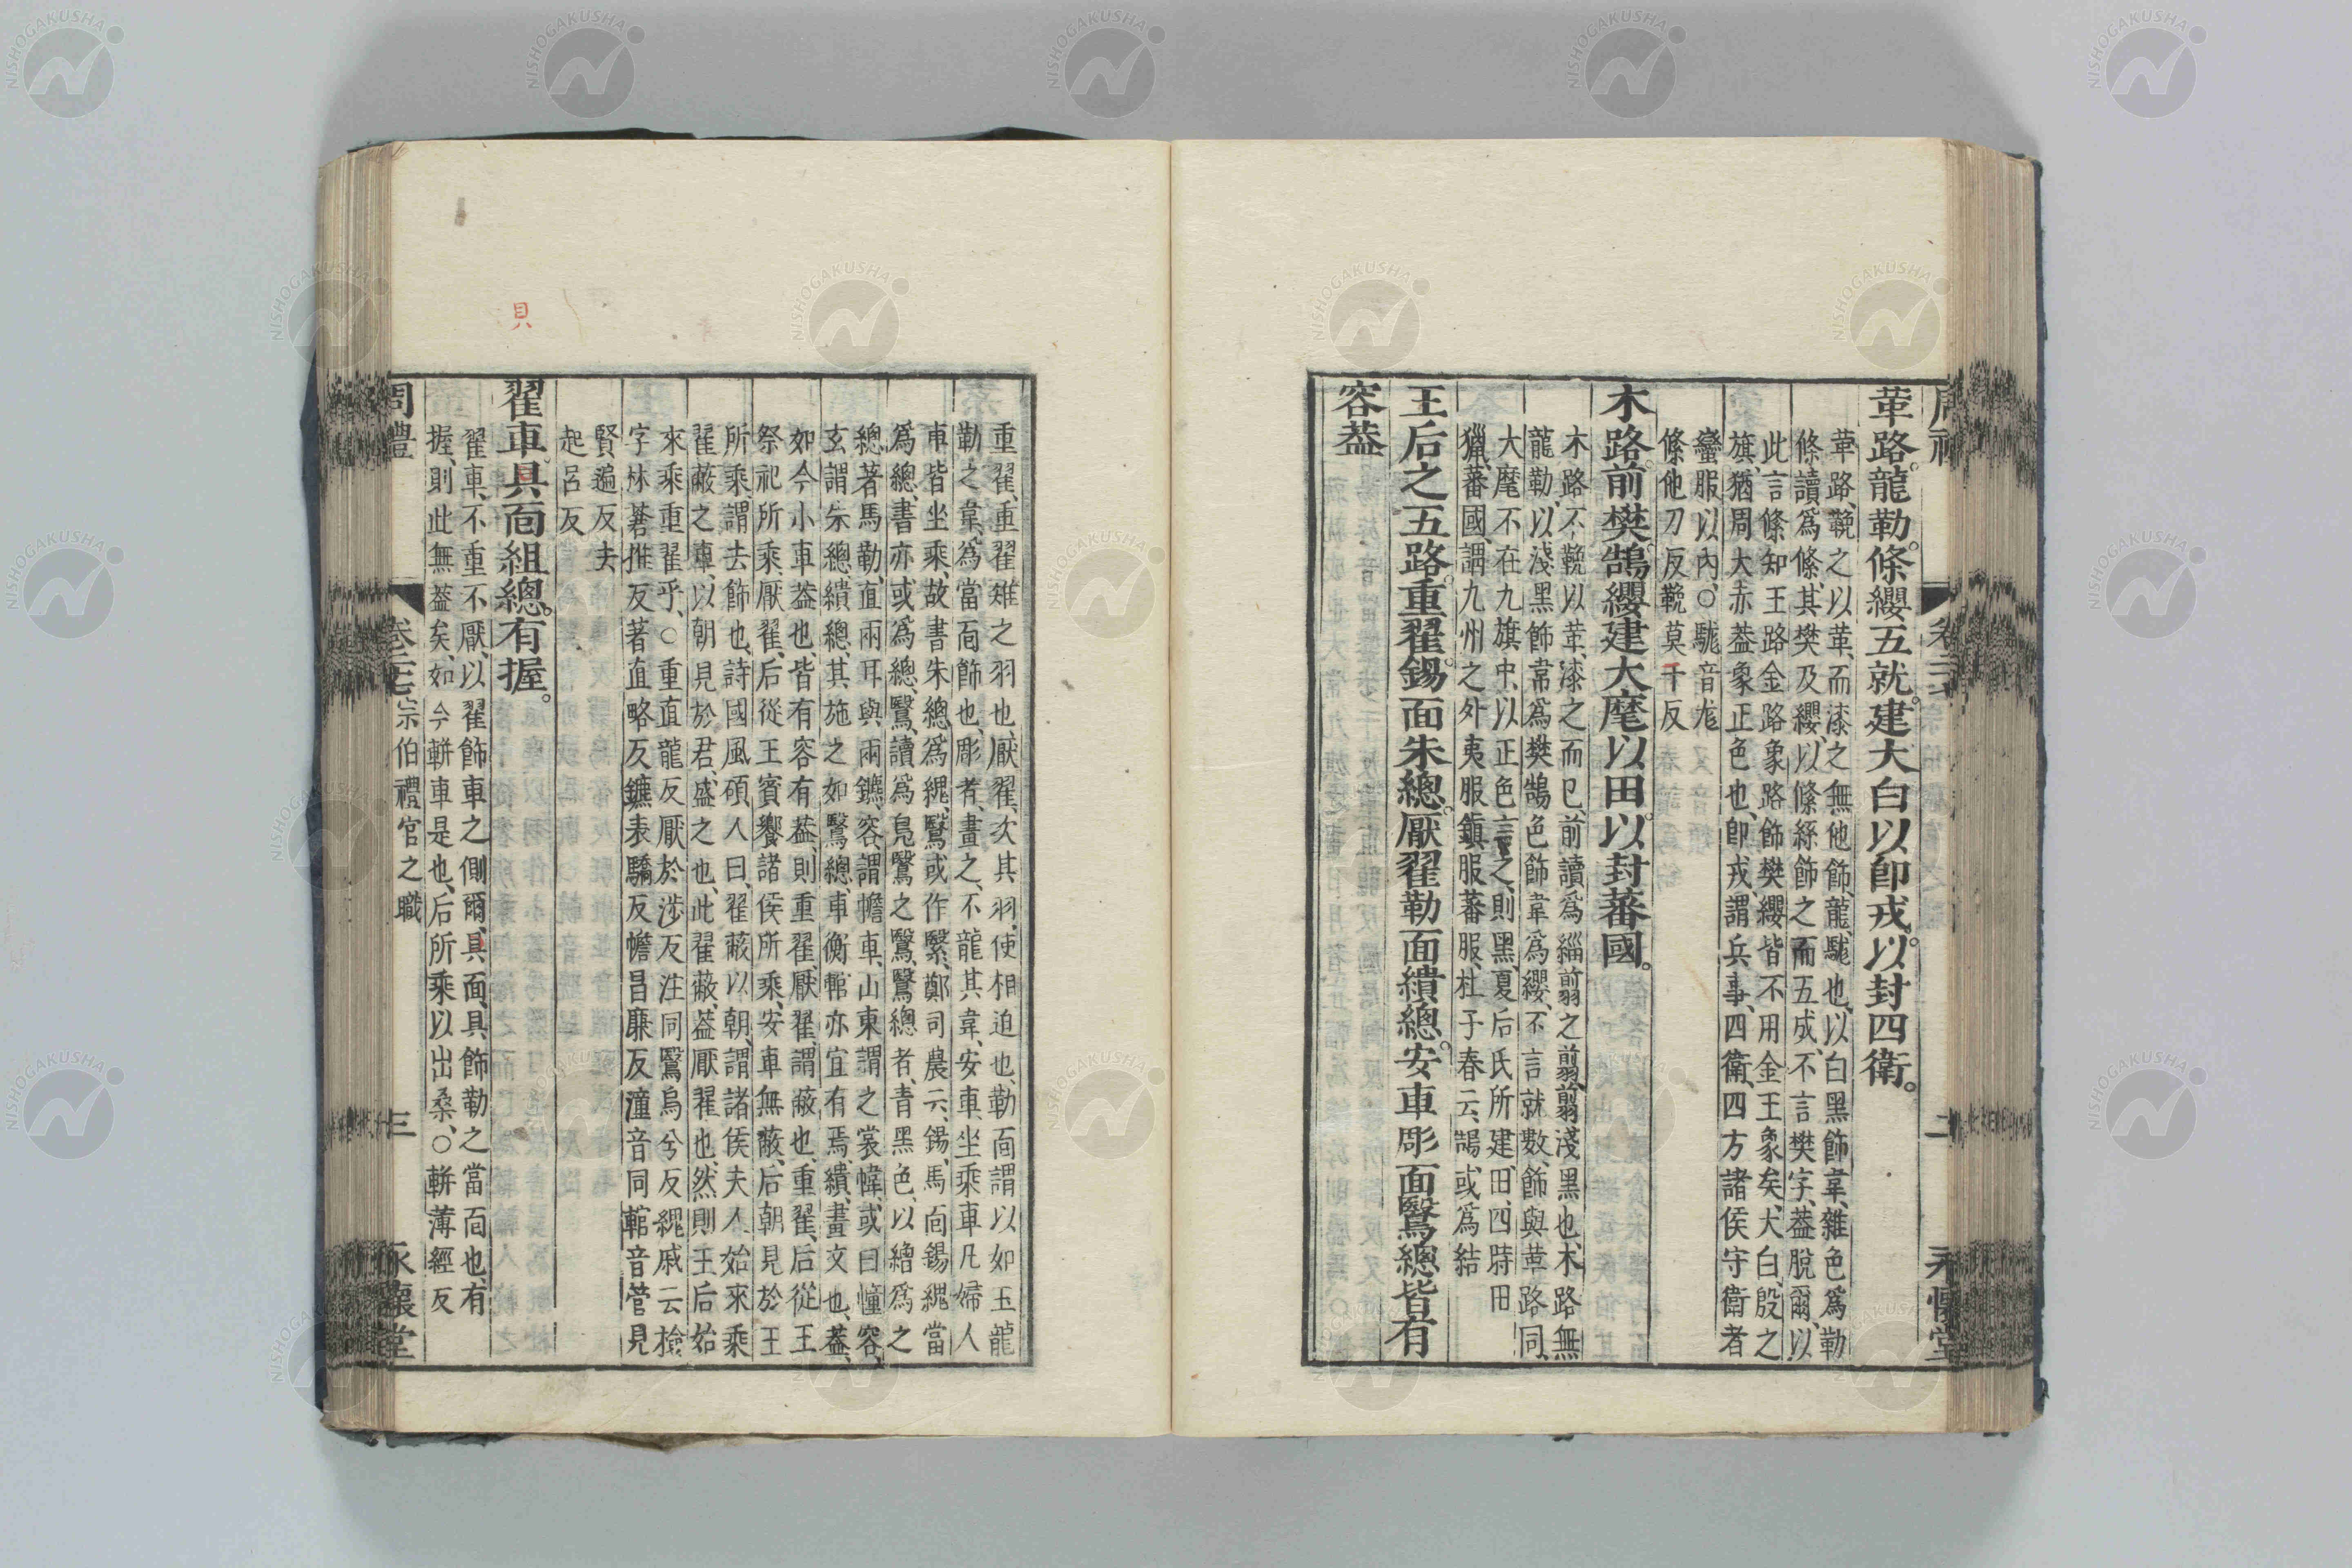 革路龍勒條纓五就建大白以卽戎以封四衛
革路鞔之以革而漆之無他飾龍駹也以白黑飾韋雜色爲勒
條讀爲條其樊及纓以條絲飾之而五成不言樊字葢脫爾以
此言條知王路金路象路飾樊纓皆不用金玉象矣大白殷之
旗猶周大赤葢象正色也卽戎謂兵事四衛四方諸侯守衛者
蠻服以內○駹音尨
條他刀反鞔莫干反
木路前樊鵠纓建大麾以田以封蕃國
木路不鞔以革漆之而已前讀爲緇翦之翦翦淺黑也木路無
龍勒以淺黑飾韋爲樊鵠色飾韋爲纓不言就數飾與革路同
大麾不在九旗中以正色言之則黑夏后氏所建田四時田
獵蕃國謂九州之外夷服鎭服蕃服杜子春云鵠或爲結
王后之五路重翟錫面朱總厭翟勒面繢總安車彫面鷖總皆有
容葢
重翟重翟雉之羽也厭翟次其羽使相迫也勒面謂以如玉龍
勒之韋爲當面飾也彫者畫之不龍其韋安車坐乘車凡婦人
車皆坐乘故書朱總爲繐鷖或作緊鄭司農云錫馬面錫繐當
爲總書亦或爲總鷖讀爲鳧鷖之鷖鷖總者靑黑色以繒爲之
總著馬勒直兩耳與兩鑣容謂幨車山東謂之裳幃或曰潼容
玄謂朱總繢總其施之如鷖總車衡輨亦宜有焉繢畫文也葢
如今小車葢也皆有容有葢則重翟厭翟謂蔽也重翟后從王
祭祀所乘厭翟后從王賓饗諸侯所乘安車無蔽后朝見於王
所乘謂去飾也詩國風碩人曰翟蔽以朝謂諸侯夫人始來乘
翟蔽之車以朝見於君盛之也此翟蔽葢厭翟也然則王后始
來乘重翟乎○重直龍反厭於涉反注同鷖烏兮反繐戚云檢
字林蒼推反著直略反鑣表驕反幨昌廉反潼音同輨音管見
賢遍反去
起呂反
翟車具面組總有握
貝
翟車不重不厭以翟飾車之側爾具面具飾勒之當面也有
握則此無葢矣如今軿車是也后所乘以出桑○軿薄經反
周禮 卷二七 宗伯禮官之職 三 永懷堂